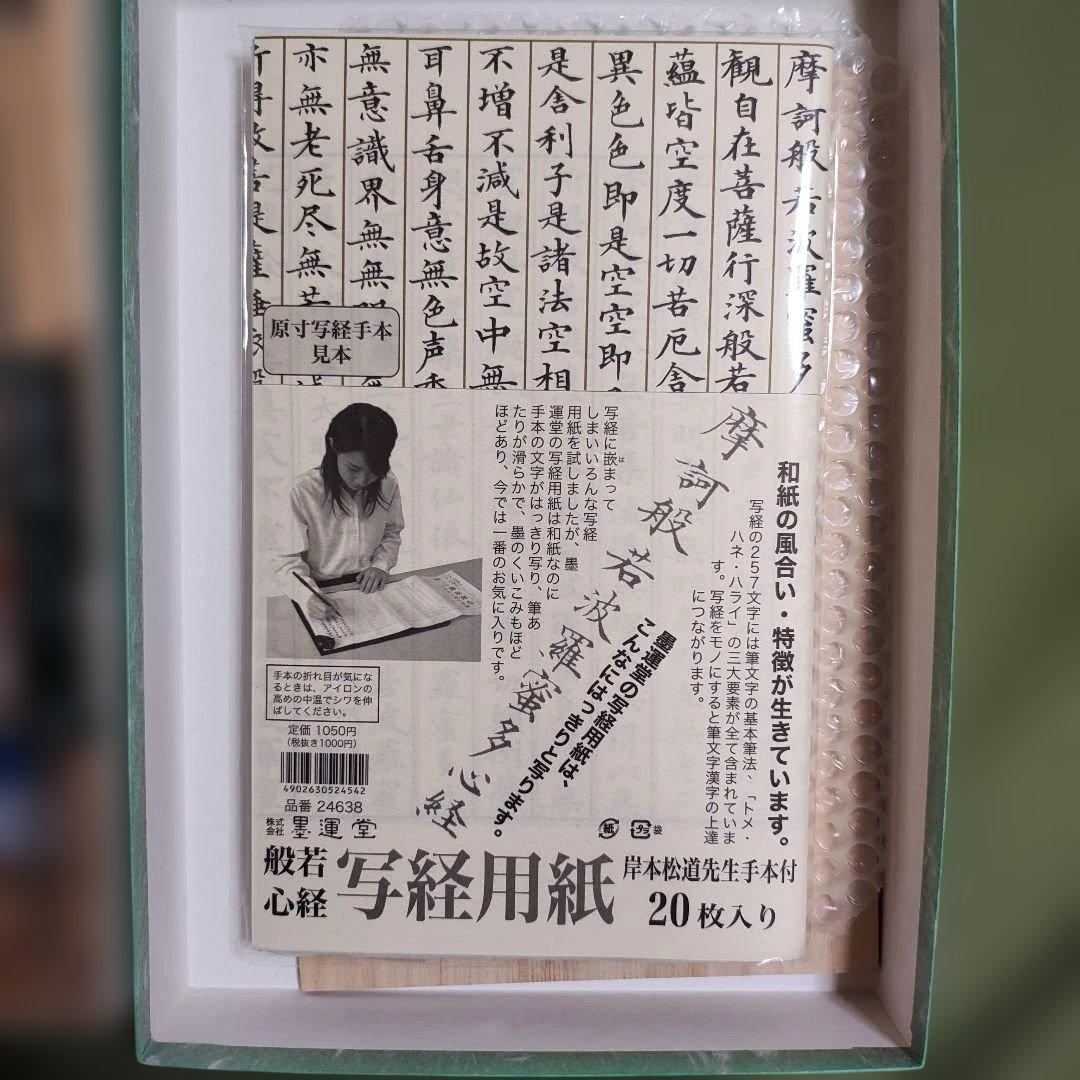 摩訶般若波羅蜜多
観自在菩薩行深般若
蘊皆空度一切苦厄舎
異色色即是空空即
是舎利子是諸法空相
不増不減是故空中無
耳鼻舌身意無色声香
無意識界無無明
亦無老死尽無苦
所得故菩是薩埵
原寸写経手本
見本
和紙の風合い・特徴が生きています。
写経の257文字には筆文字の基本筆法、「トメ・
ハネ・ハライ」の三大要素が全て含まれていま
す。写経をモノにすると筆文字漢字の上達
につながります。
摩訶般若波羅蜜多心経
墨運堂の写経用紙は、
こんなにはっきりと写ります。
写経に嵌まって
は
しまいいろんな写経
用紙を試しましたが、墨
運堂の写経用紙は和紙なのに
手本の文字がはっきり写り、筆あ
たりが滑らかで、墨のくいこみもほど
ほどあり、今では一番のお気に入りです。
手本の折れ目が気にな
るときは、アイロンの
高めの中温でシワを伸
ばしてください。
定価 1050円
(税抜き1000円)
4902630524542
品番 24638
株式会社 墨運堂
紙
プラ
袋
般若心経 写経用紙
岸本松道先生手本付
20枚入り